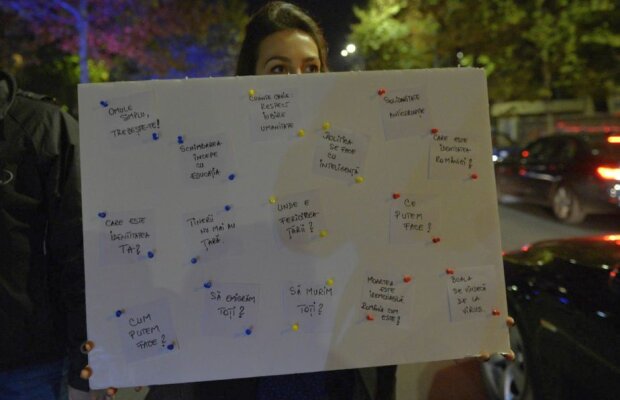 OMULE
SIMPLU,
TREZEȘTE-TE!
SCHIMBAREA
ÎNCEPE
CU
EDUCAȚIA
RESPECT
IUBIRE
UMANITATE
POLITICA
SE FACE
CU
INTELIGENȚĂ
ANTICORUPȚIE
CARE ESTE
IDENTITATEA
ROMÂNIEI?
CARE ESTE
IDENTITATEA
TA?
TINERII
NU MAI AU
ȚARĂ
UNDE E
FERICIREA
ȚĂRII?
CE
PUTEM
FACE?
CUM
PUTEM
FACE?
SĂ EMIGRĂM
TOȚI?
SĂ MURIM
TOȚI?
MOARTEA
ESTE
IREMEDIABILĂ
ROMÂNIA CUM
ESTE?
BOALA
SE VINDECĂ
DE LA
VIRUS